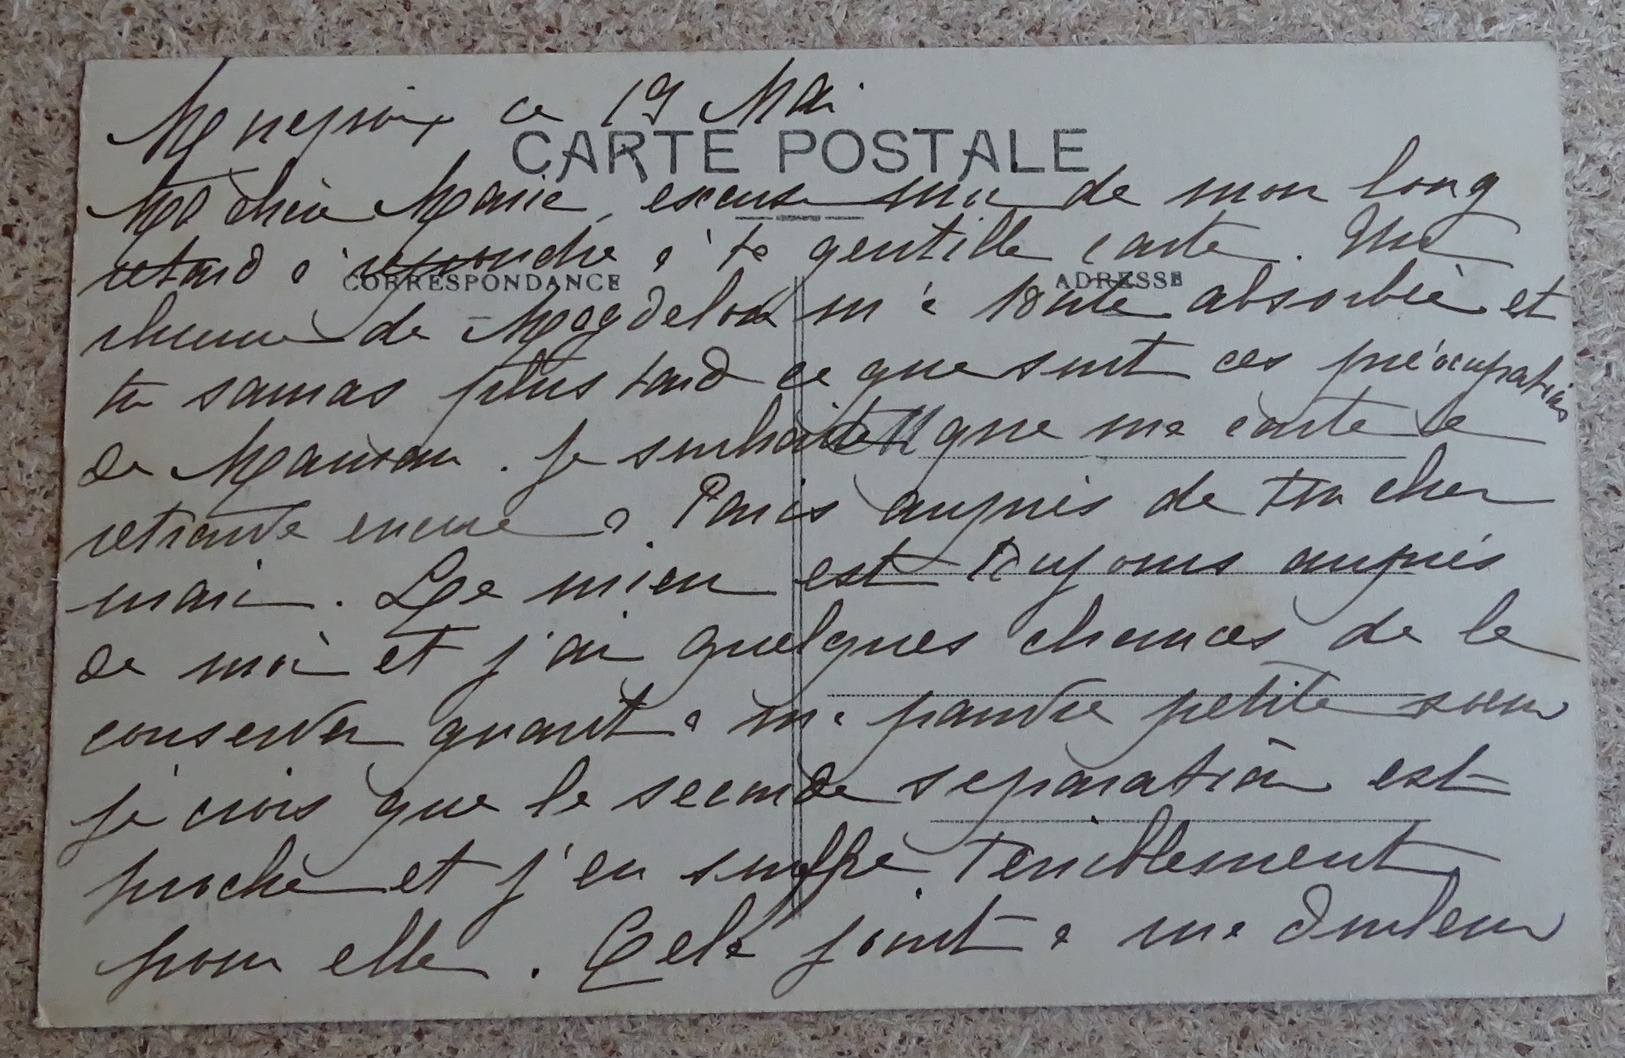 ce 19 Mai
CARTE POSTALE
Ma chère Marie, excuse moi de mon long
retard à répondre à ta gentille carte. Une
CORRESPONDANCE
ADRESSE
rhume de Magdelon m'a toute absorbée et
tu sauras plus tard ce que sont ces préocupations
de Maman. Je souhaite que ma carte te
retrouve encore à Paris auprès de ton cher
mari. Le mien est toujours auprès
de moi et j'ai quelques chances de le
conserver quant à ma pauvre petite soeur
je crois que la seconde séparation est
proche et j'en souffre terriblement
pour elle. Cela joint à ma douleur